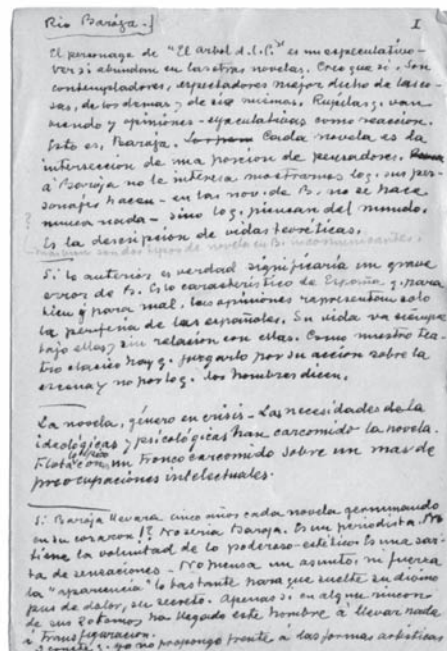 Pio Baroja.-
I
El personage de "El arbol d.l.C." es un especulativo-
ver si abundan en las otras novelas. Creo que si. Son
contempladores, espectadores mejor dicho de las co-
sas, de los demas y de si mismas. Pupilas q. van
viendo y opiniones-especulativas como reaccion.
Esto es, Baroja. Cada novela es la
interseccion de una porcion de pensadores.
á Baroja no le interesa mostrarnos lo q. sus per-
sonajes hacen - en las nov. de B. no se hace
nunca nada - sino lo q. piensan del mundo.
Es la descripcion de vidas teoreticas.
son dos tipos de novela en B. incomunicantes.
Si lo anterior es verdad significaria un grave
error de B. Es lo caracteristico de España q. para
bien y para mal. las opiniones representan solo
la periferia de los españoles. Su vida va siempre
bajo ellas y sin relacion con ellas. Como nuestro tea-
tro clasico hay q. juzgarlo por su accion sobre la
escena y no por lo q. los hombres dicen.
La novela, género en crisis - Las necesidades de la
ideologicas y psicológicas han carcomido la novela.
Flota como un tronco carcomido sobre un mar de
preocupaciones intelectuales.
Si Baroja llevara cinco años cada novela germinando
en su corazon!? No seria Baroja. Es un periodista. No
tiene la voluntad de lo poderoso-estético. Es una sar-
ta de sensaciones - No piensa un asunto, ni fuerza
la "apariencia" lo bastante para que suelte su divino
pus de dolor, su secreto. Apenas si en algun rincon
de sus sotanos ha llegado este hombre á llevar nada
á transfiguracion.
q. yo no propongo frente á las formas artisticas